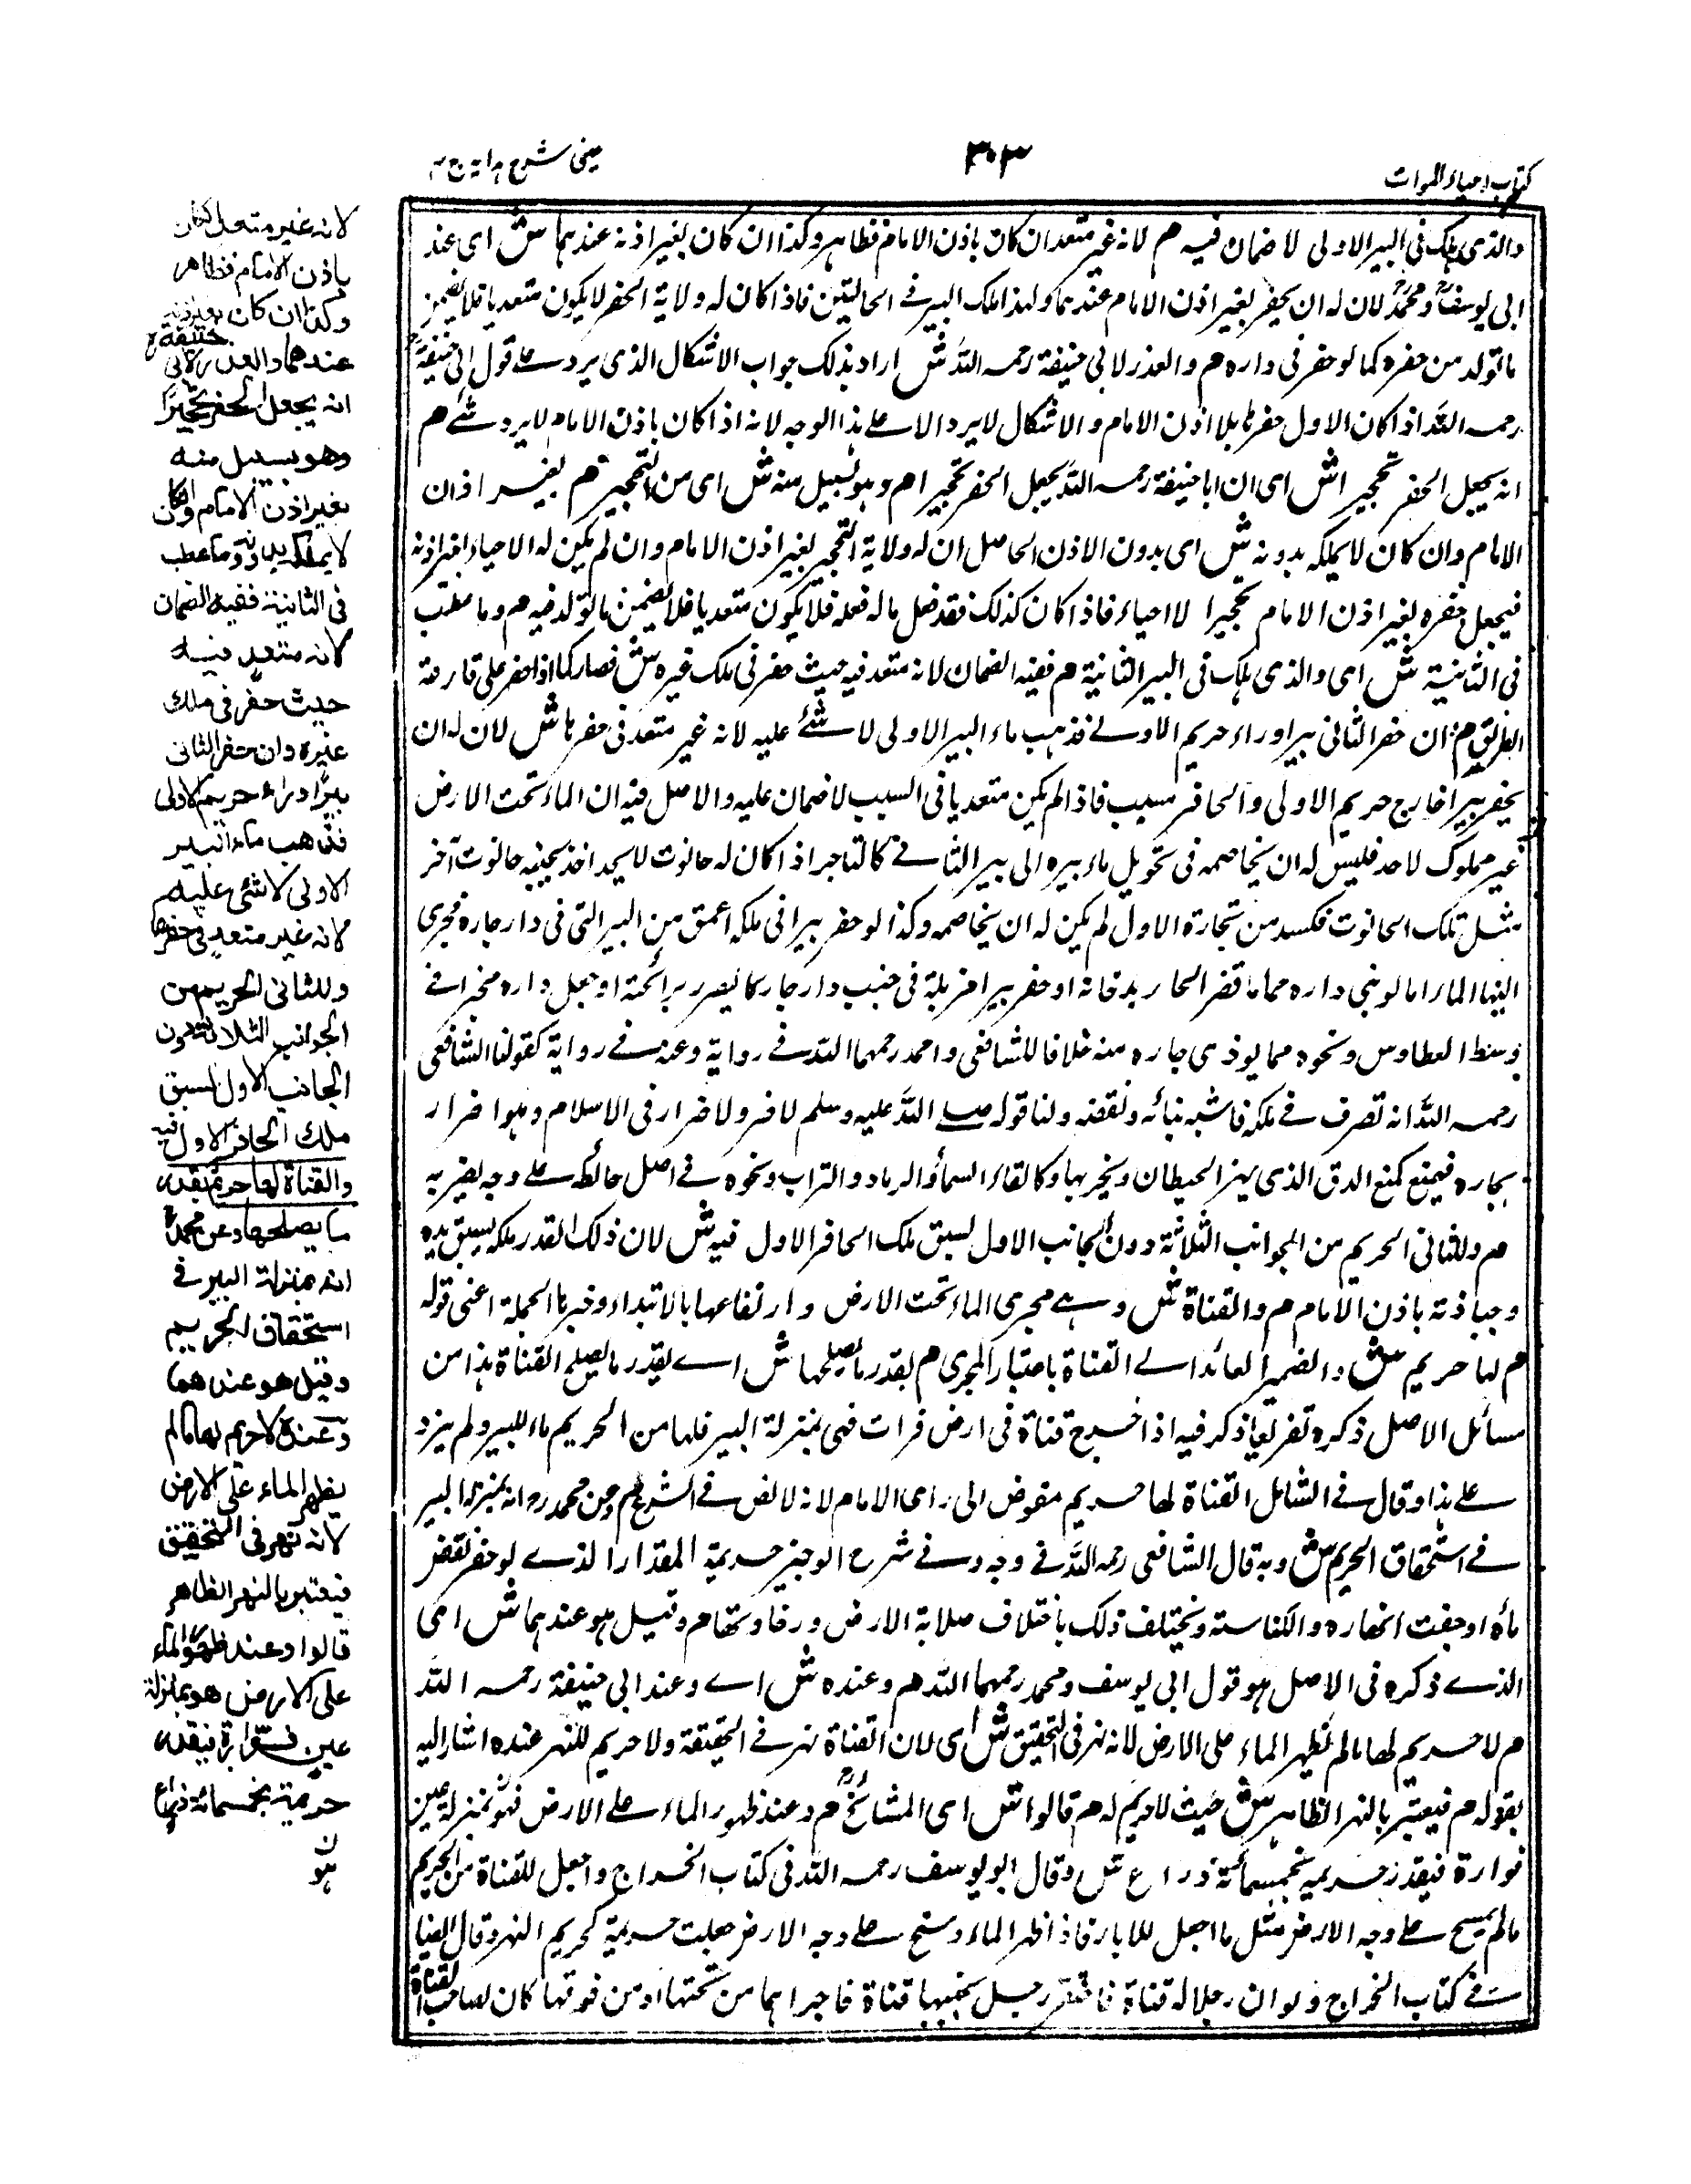 كتاب احياء الموات
٣٠٣
عينى شرح هداية ج ٤
والذى هلك فى البير الاولى لا ضمان فيه م لانه غير متعد ان كان باذن الامام فظاهر وكذا ان كان بغير اذنه عندهما ش اى عند
ابى يوسف ومحمد لان له ان يحفر بغير اذن الامام عندهما ولهذا ملك البير فى الحالتين فاذا كان له ولاية الحفر لا يكون متعديا فلا يضمن
ما تولد من حفره كما لو حفر فى داره م والعذر لابى حنيفة رحمه الله ش اراد بذلك جواب الاشكال الذى يرد على قول ابى حنيفة
رحمه الله اذا كان الاول حفرها بلا اذن الامام والاشكال لا يرد الا على هذا الوجه لانه اذا كان باذن الامام لا يرد شئ م
انه يجعل الحفر تحجيرا ش اى ان ابا حنيفة رحمه الله يجعل الحفر تحجيرا م وهو بسبيل منه ش اى من التحجير م بغير اذن
الامام وان كان لا يملكه بدونه ش اى بدون الاذن الحاصل ان له ولاية التحجير بغير اذن الامام وان لم يكن له الاحياء بغير اذنه
فيجعل حفره بغير اذن الامام تحجيرا لا احياء فاذا كان كذلك فقد فعل ما له فعله فلا يكون متعديا فلا يضمن ما تولد فيه م وما عطب
فى الثانية ش اى والذى هلك فى البير الثانية م ففيه الضمان لانه متعد فيه حيث حفر فى ملك غيره ش فصار كما اذا حفر على قارعة
الطريق م وان حفر الثانى بيرا وراء حريم الاولى فذهب ماء البير الاولى لا شئ عليه لانه غير متعد فى حفرها ش لان له ان
يحفر بيرا خارج حريم الاولى والحافر مسبب فاذا لم يكن متعديا فى السبب لا ضمان عليه والاصل فيه ان الماء تحت الارض
غير مملوك لاحد فليس له ان يخاصمه فى تحويل ماء بيره الى بير الثانى كالتاجر اذا كان له حانوت لا يحد اخذ بجنبه حانوت آخر
بمثل تلك الحانوت فكسد من تجارة الاول لم يكن له ان يخاصمه وكذا لو حفر بيرا فى ملكه اعمق من البير التى فى دار جاره فجرى
اليها الماء اما لو بنى داره حماما قضر الجار بدخانه او حفر بيرا مزبلة فى جنب دار جاره يضر برائحته او جعل داره مخبزا فى
وسط العطاوس ونحوه مما يوذى جاره منه خلافا للشافعى واحمد رحمهما الله فى رواية وعنه فى رواية كقولنا الشافعى
رحمه الله انه تصرف فى ملكه فاشبه بنائه ونقضه ولنا قوله صلى الله عليه وسلم لا ضرر ولا ضرار فى الاسلام وهو اضرار
بجاره فيمنع كمنع الدق الذى يهز الحيطان ويخربها وكالقاء السماد والرماد والتراب ونحوه فى اصل حائطه على وجه يضر به
م وللثانى الحريم من الجوانب الثلاثة دون الجانب الاول لسبق ملك الحافر الاول فيه ش لان ذلك القدر ملكه بسبق يده
وحيازته باذن الامام م والقناة ش وهى مجرى الماء تحت الارض وارتفاعها بالابتداء وخبرها الجملة اعنى قوله
م لها حريم ش والضمير العائد الى القناة باعتبار المجرى م بقدر ما يصلحها ش اى بقدر ما يصلح القناة هذا من
مسائل الاصل ذكره تفريعا ذكر فيه اذا اخرج قناة فى ارض فرات فهى بمنزلة البير فلها من الحريم ما للبير ولم يزد
على هذا وقال فى الشامل القناة لها حريم مفوض الى راى الامام لانه لا نص فى الشرع م وعن محمد رح انه بمنزلة البير
فى استحقاق الحريم ش وبه قال الشافعى رحمه الله فى وجه وفى شرح الوجيز حريمة المقدار الذى لو حفر نقص
ماؤه او جفت انهاره والكناسة ويختلف ذلك باختلاف صلابة الارض ورخاوتها م وقيل هو عندهما ش اى
الذى ذكره فى الاصل هو قول ابى يوسف ومحمد رحمهما الله م وعنده ش اى وعند ابى حنيفة رحمه الله
م لا حريم لها ما لم يظهر الماء على الارض لانه نهر فى التحقيق ش اى لان القناة نهر فى الحقيقة ولا حريم للنهر عنده اشار اليه
بقوله م فيعتبر بالنهر الظاهر ش حيث لا حريم له م قالوا ش اى المشائخ م وعند ظهور الماء على الارض فهو بمنزلة عين
فوارة فيقدر حريمه بخمسمائة ذراع ش وقال ابو يوسف رحمه الله فى كتاب الخراج واجعل للقناة من الحريم
ما لم يسح على وجه الارض مثل ما اجعل للابار فاذا ظهر الماء وسح على وجه الارض جعلت حريمة كحريم النهر وقال ايضا
فى كتاب الخراج ولو ان رجلا له قناة فاحتفر رجل بجنبها قناة فاجراها من تحتها او من فوقها كان لصاحب القناة
لانه غير متعد ان كان
باذن الامام فظاهر
وكذا ان كان بغير اذنه
عندهما والعذر لابى حنيفة رح
انه يجعل الحفر تحجيرا
وهو بسبيل منه
بغير اذن الامام وان كان
لا يملكه بدونه وما عطب
فى الثانية ففيه الضمان
لانه متعد فيه
حيث حفر فى ملك
غيره وان حفر الثانى
بيرا وراء حريم الاولى
فذهب ماء البير
الاولى لا شئ عليه
لانه غير متعد فى حفرها
وللثانى الحريم من
الجوانب الثلاثة دون
الجانب الاول لسبق
ملك الحافر الاول فيه
والقناة لها حريم بقدر
ما يصلحها وعن محمد رح
انه بمنزلة البير فى
استحقاق الحريم
وقيل هو عندهما
وعنده لا حريم لها ما لم
يظهر الماء على الارض
لانه نهر فى التحقيق
فيعتبر بالنهر الظاهر
قالوا وعند ظهور الماء
على الارض هو بمنزلة
عين فوارة فيقدر
حريمه بخمسمائة ذراع